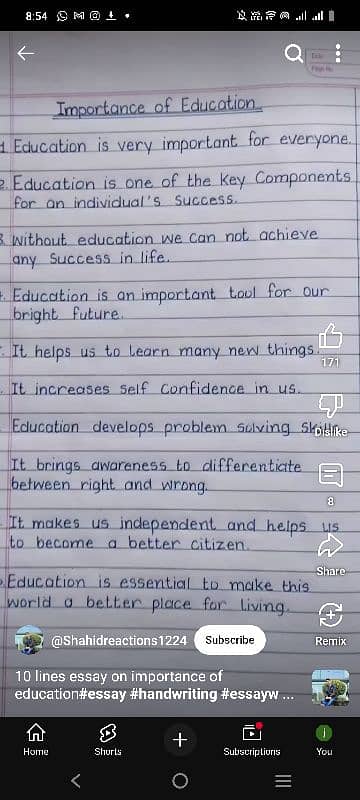 8:54
Date
Page No.
Importance of Education
1 Education is very important for everyone.
2. Education is one of the Key Components
for an individual's Success.
3. without education we can not achieve
any Success in life.
Education is an important tool for our
bright future.
It helps us to learn many new things.
171
It increases self Confidence in us.
Education develops problem solving Skills
Dislike
It brings awareness to differentiate
between right and wrong.
8
It makes us independent and helps us
to become a better citizen.
Share
Education is essential to make this
world a better place for living.
@Shahidreactions1224 Subscribe
Remix
10 lines essay on importance of
education#essay #handwriting #essayw ...
Home Shorts Subscriptions You